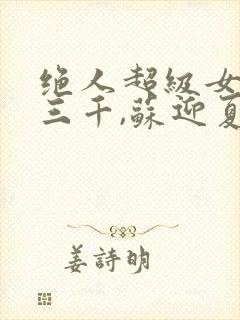 绝人超級女
三千,蘇迎夏
姜詩明